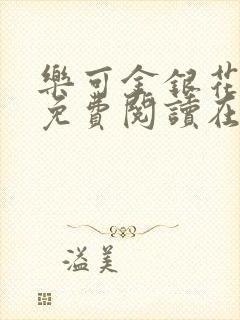 樂可金銀花
免費閱讀在
溢美